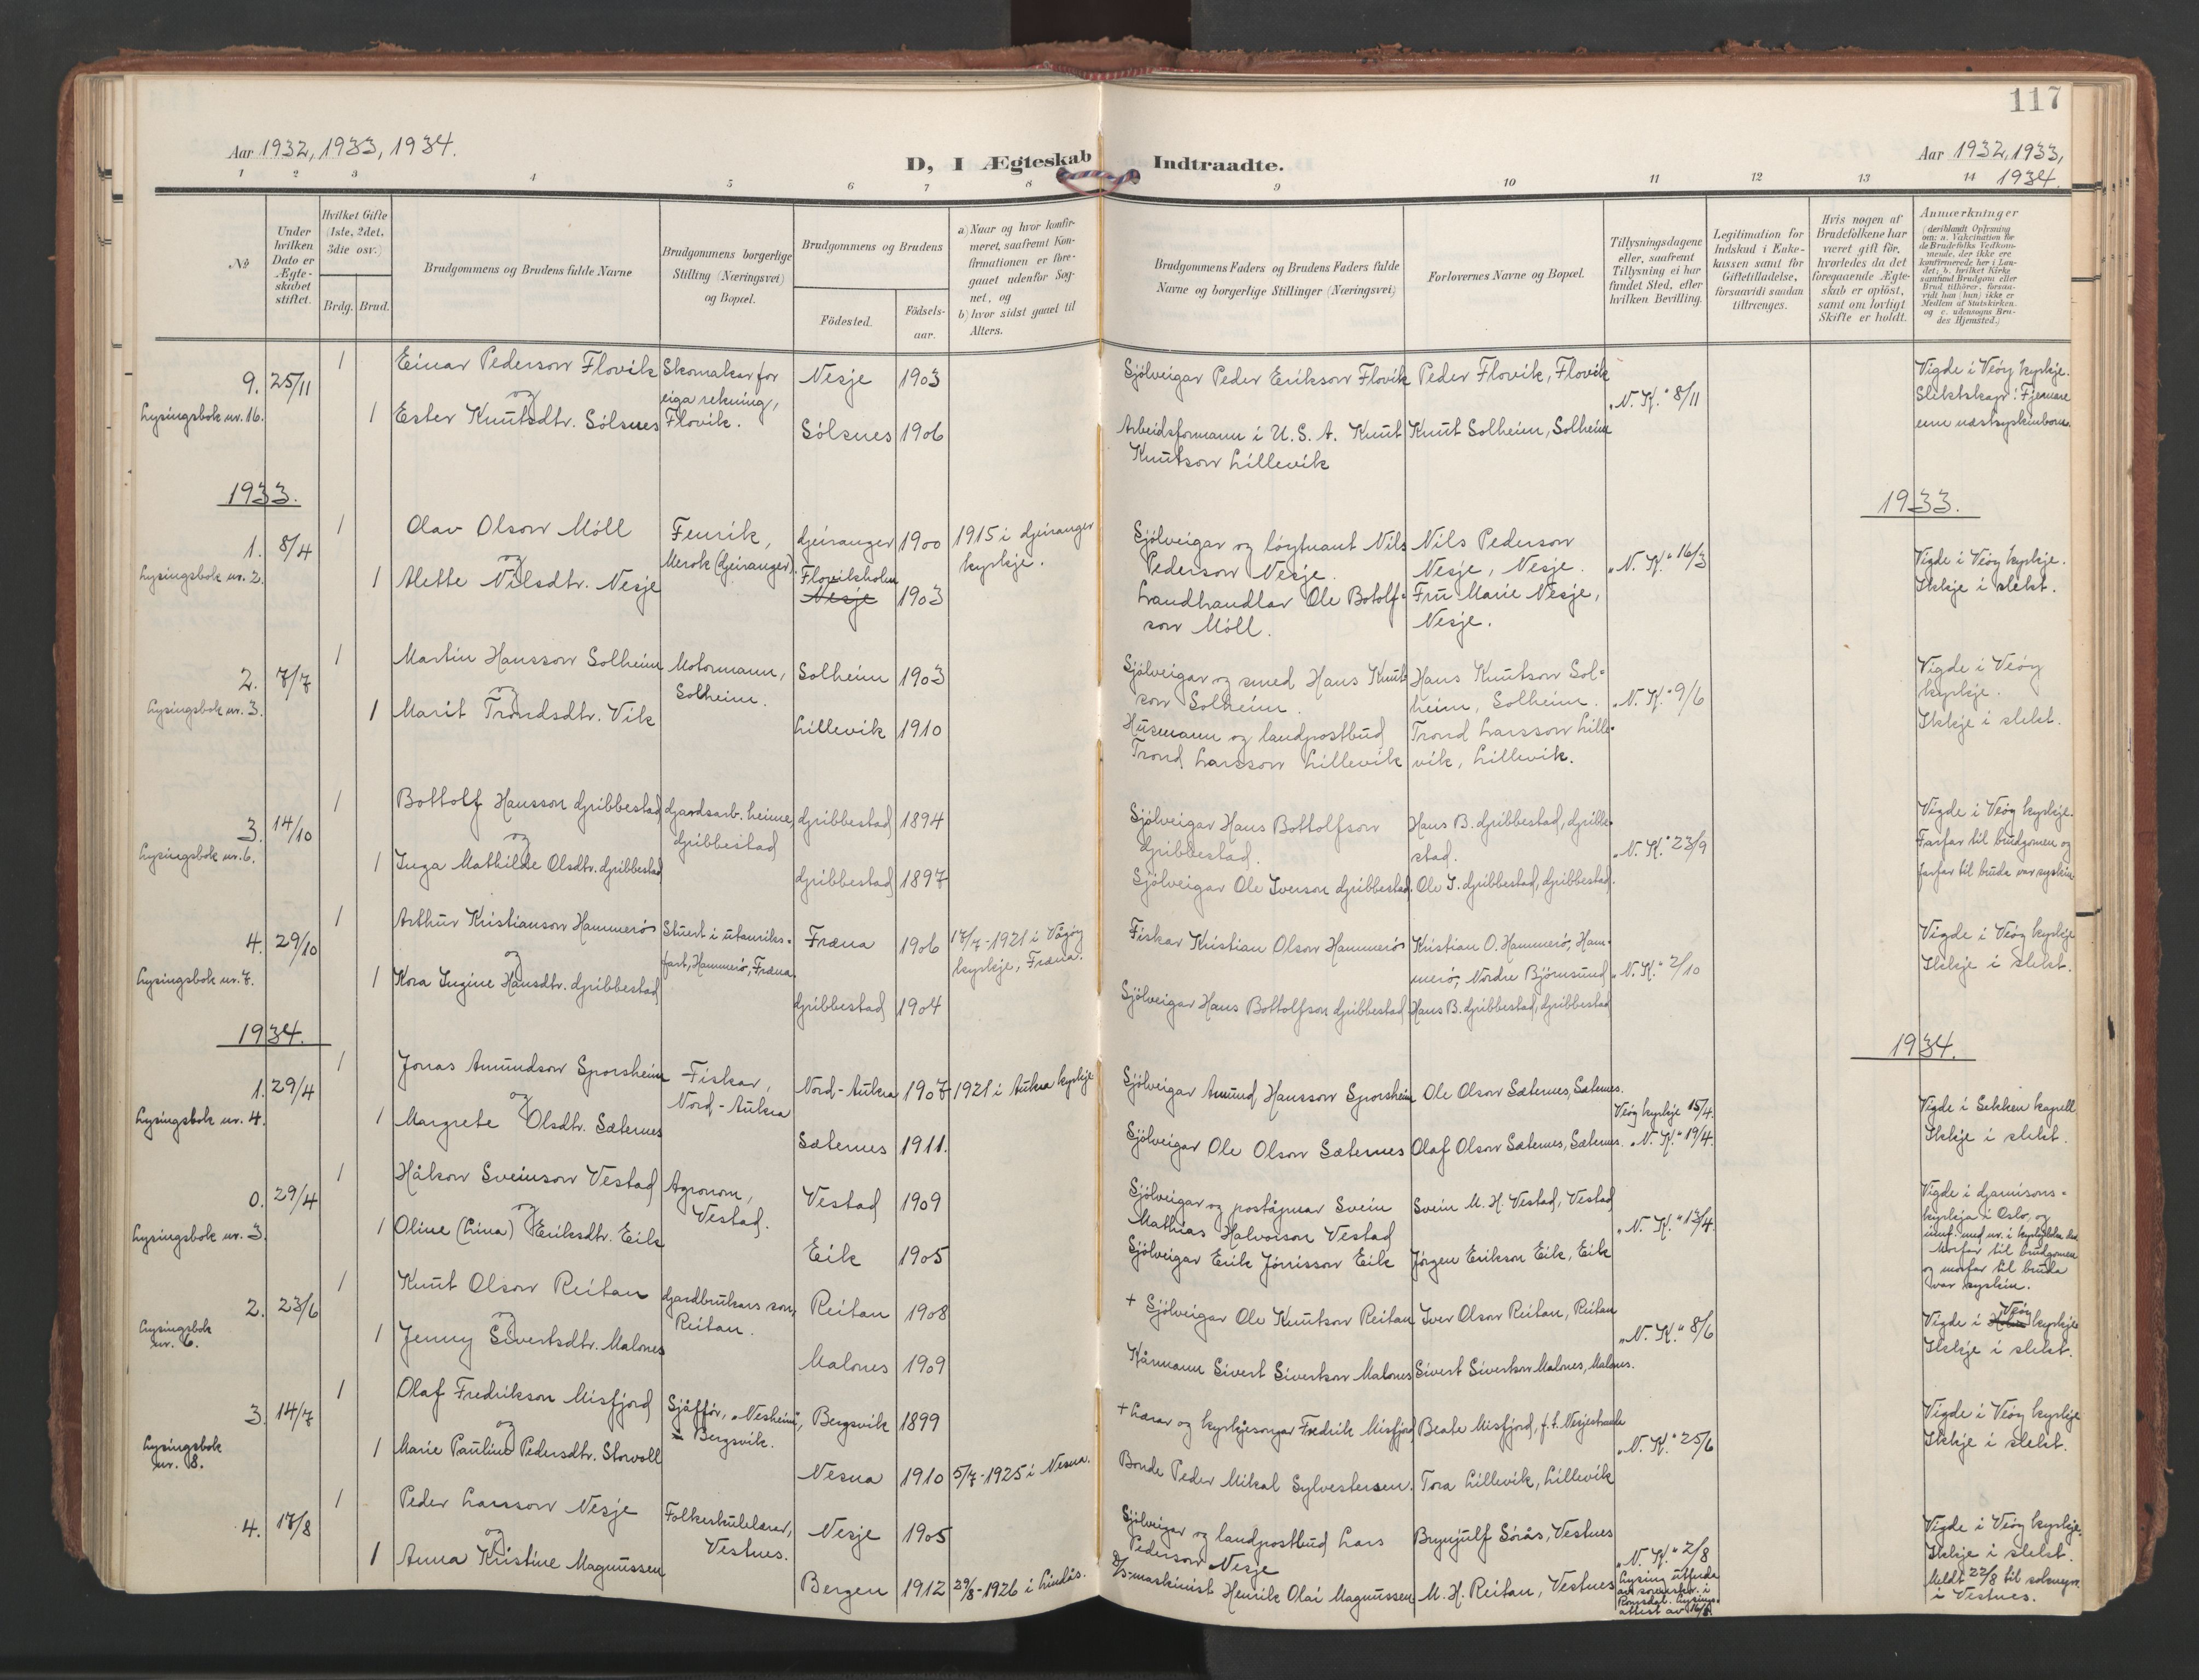 117
Aar 1932, 1933, 1934.
D, I Ægteskab Indtraadte.
Aar 1932, 1933,
1934.
1 2 3 4 5 6 7 8 9 10 11 12 13 14
No
Under hvilken Dato er Ægteskabet stiftet.
Hvilket Gifte (1ste, 2det, 3die osv.)
Brdg. Brud.
Brudgommens og Brudens fulde Navne
Brudgommens borgerlige Stilling (Næringsvei) og Bopæl.
Brudgommens og Brudens
Fødested.
Fødselsaar.
a) Naar og hvor konfirmeret, saafremt Konfirmationen er foregaaet udenfor Sognet, og
b) hvor sidst gaaet til Alters.
Brudgommens Faders og Brudens Faders fulde Navne og borgerlige Stillinger (Næringsvei)
Forlovernes Navne og Bopæl.
Tillysningsdagene eller, saafremt Tillysning ei har fundet Sted, efter hvilken Bevilling.
Legitimation for Indskud i Enkekassen samt for Giftetilladelse, forsaavidt saadan tiltrænges.
Hvis nogen af Brudefolkene har været gift før, hvorledes da det foregaaende Ægteskab er opløst, samt om lovligt Skifte er holdt.
Anmærkninger (deriblandt Oplysning om: a. Vakcination for de Brudefolks Vedkommende, der ikke ere konfirmerede her i Landet; b. hvilket Kirkesamfund Brudgom eller Brud tilhører, forsaavidt han (hun) ikke er Medlem af Statskirken, og c. udensogns Brudes Hjemsted.)
9. 25/11 1 Einar Pederson Flovik Skomakar for eiga rekning, Flovik. Nesje 1903 Sjölveigar Peder Erikson Flovik Peder Flovik, Flovik „N. K." 8/11 Vigde i Veöy kyrkje. Slektskap: Fjernare enn næstsyskinborn.
Lysingsbok nr. 16. og
1 Ester Knutsdtr. Sölsnes Sölsnes 1906 Arbeidsformann i U. S. A. Knut Knutson Lillevik Knut Solheim, Solheim
1933. 1933.
1. 8/4 1 Olav Olson Möll Fenrik, Merok (Geiranger). Geiranger 1900 1915 i Geiranger kyrkje. Sjölveigar og löytnant Nils Pederson Nesje. Nils Pederson Nesje, Nesje. „N. K." 16/3 Vigde i Veöy kyrkje. Ikkje i slekt.
Lysingsbok nr. 2. og
1 Alette Nilsdtr. Nesje Flovikholm Nesje 1903 Landhandlar Ole Botolfson Möll. Fru Marie Nesje, Nesje.
2. 7/7 1 Martin Hansson Solheim Motormann, Solheim. Solheim 1903 Sjölveigar og smed Hans Knutson Solheim. Hans Knutson Solheim, Solheim. „N. K." 9/6 Vigde i Veöy kyrkje. Ikkje i slekt.
Lysingsbok nr. 3. og
1 Marit Trondsdtr. Vik Lillevik 1910 Husmann og landpostbud Trond Larsson Lillevik Trond Larsson Lillevik, Lillevik.
3. 14/10 1 Bottolf Hansson Gribbestad Gardsarb. heime, Gribbestad Gribbestad 1894 Sjölveigar Hans Bottolfson Gribbestad. Hans B. Gribbestad, Gribbestad. „N. K." 23/9 Vigde i Veöy kyrkje. Farfar til brudgomen og farfar til bruda var syskin.
Lysingsbok nr. 6. og
1 Inga Mathilde Olsdtr. Gribbestad Gribbestad 1897 Sjölveigar Ole Iverson Gribbestad. Ole I. Gribbestad, Gribbestad.
4. 29/10 1 Arthur Kristianson Hammerö Stuert i utanriksfart, Hammerö, Fræna. Fræna 1906 17/7-1921 i Vågöy kyrkje, Fræna. Fiskar Kristian Olson Hammerö Kristian O. Hammerö, Hammerö, Nordre Björnsund „N. K." 2/10 Vigde i Veöy kyrkje Ikkje i slekt.
Lysingsbok nr. 7. og
1 Kora Ingine Hansdtr. Gribbestad Gribbestad 1904 Sjölveigar Hans Bottolfson Gribbestad Hans B. Gribbestad, Gribbestad
1934. 1934.
1. 29/4 1 Jonas Amundson Sporsheim Fiskar, Nord-Aukra Nord-Aukra 1907 1921 i Aukra kyrkje Sjölveigar Amund Hansson Sporsheim Ole Olson Sæternes, Sæternes. Veöy kyrkje 15/4. „N. K." 19/4. Vigde i Sekken kapell Ikkje i slekt.
Lysingsbok nr. 4. og
1 Margrete Olsdtr. Sæternes Sæternes 1911. Sjölveigar Ole Olson Sæternes Olaf Olson Sæternes, Sæternes.
0. 29/4 1 Håkon Sveinson Vestad Agronom, Vestad. Vestad 1909 Sjölveigar og poståpnar Svein Mathias Halvorson Vestad Svein M. H. Vestad, Vestad „N. K." 13/4. Vigde i Garnisonskyrkja i Oslo, og med nr. i Morfar til brudgomen og morfar til bruda var syskin.
Lysingsbok nr. 3. og
1 Oline (Lina) Eriksdtr. Eik Eik 1905 Sjölveigar Erik Jörrisson Eik Jörgen Erikson Eik, Eik
2. 23/6 1 Knut Olson Reitan Gardbrukars son, Reitan. Reitan 1908 + Sjölveigar Ole Knutson Reitan Iver Olson Reitan, Reitan „N. K." 8/6 Vigde i Veöy kyrkje Ikkje i slekt.
Lysingsbok nr. 6. og
1 Jenny Sivertsdtr. Malones Malones 1909 Kårmann Sivert Sivertson Malones Sivert Sivertson Malones, Malones.
3. 14/7 1 Olaf Fredrikson Misfjord Sjåfför, „Nesheim", Bergsvik. Bergsvik 1899 + Lærar og kyrkjesongar Fredrik Misfjord Beate Misfjord, f. t. Nesjestranda „N. K." 25/6 Vigde i Veöy kyrkje Ikkje i slekt.
Lysingsbok nr. 8. og
1 Marie Pauline Pedersdtr. Storvoll Nesna 1910 5/7-1925 i Nesna. Bonde Peder Mikal Sylvestersen. Tora Lillevik, Lillevik
4. 17/8 1 Peder Larsson Nesje Folkeskulelærar, Vestnes. Nesje 1905 Sjölveigar og landpostbud Lars Pederson Nesje Brynjulf Sörås, Vestnes „N. K." 2/8 Lysing utferda av sorenskr. i Romsdal. Lysingsattest av 16/8. Vigde i Veöy kyrkje. Ikkje i slekt. Meldt 22/8 til sokneprn. i Vestnes.
og
1 Anna Kristine Magnussen Bergen 1912 29/8-1926 i Lindås. D/S-maskinist Henrik Olai Magnussen M. H. Reitan, Vestnes